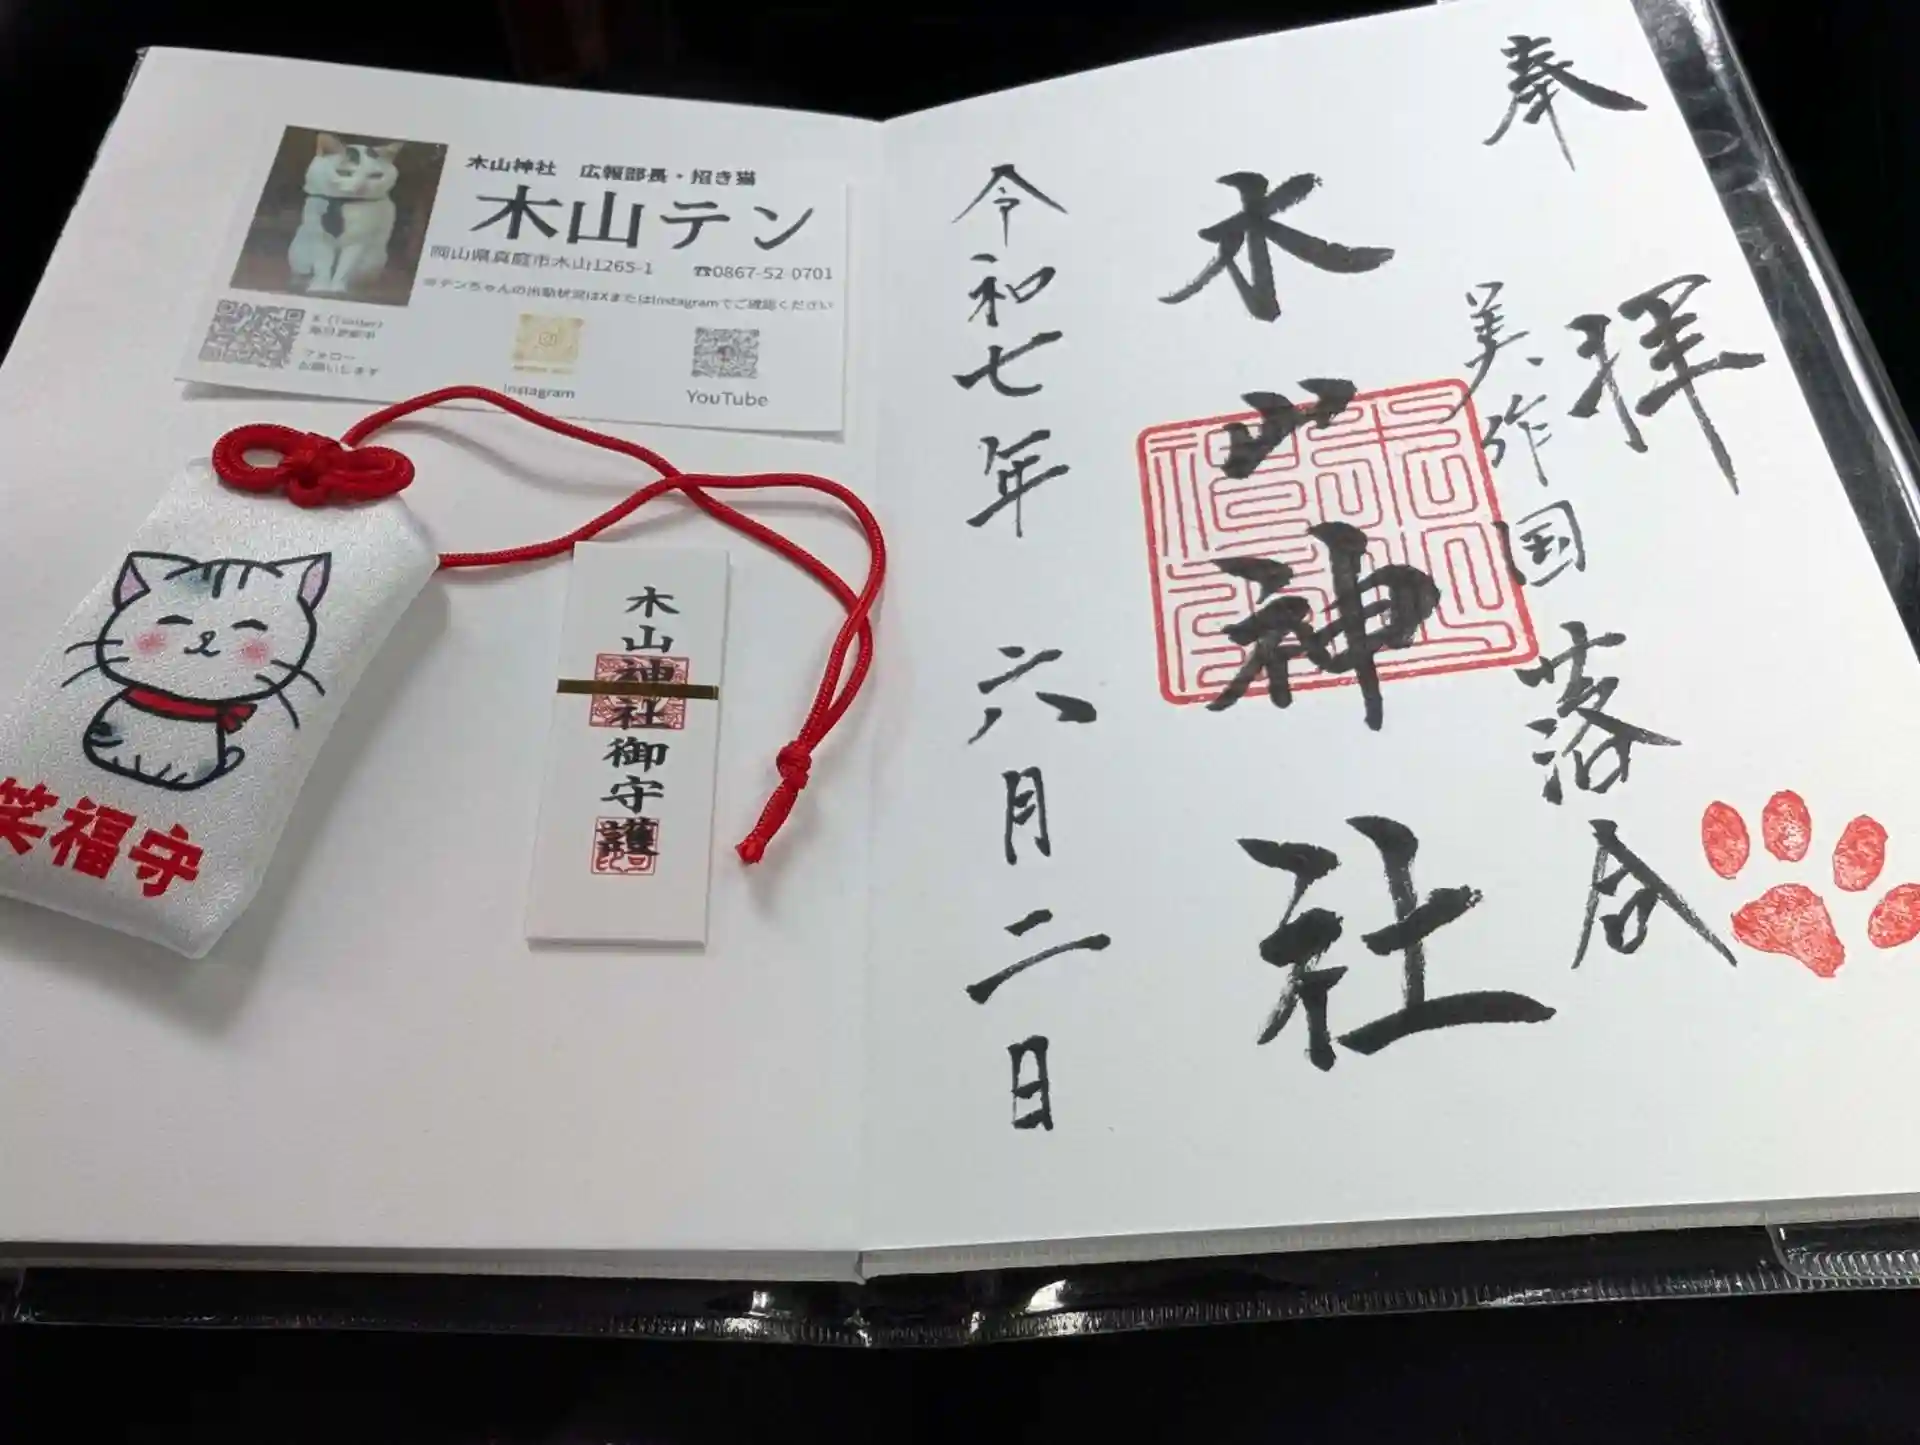 木山神社 広報部長・招き猫
木山テン
岡山県真庭市木山1265-1 ☎0867-52-0701
※テンちゃんの出勤状況はXまたはInstagramでご確認ください
X (Twitter)
毎日更新中
フォロー
お願いします
Instagram
YouTube
笑福守
木山神社御守護
奉拝
美作国 落合
木山神社
令和七年 六月二日